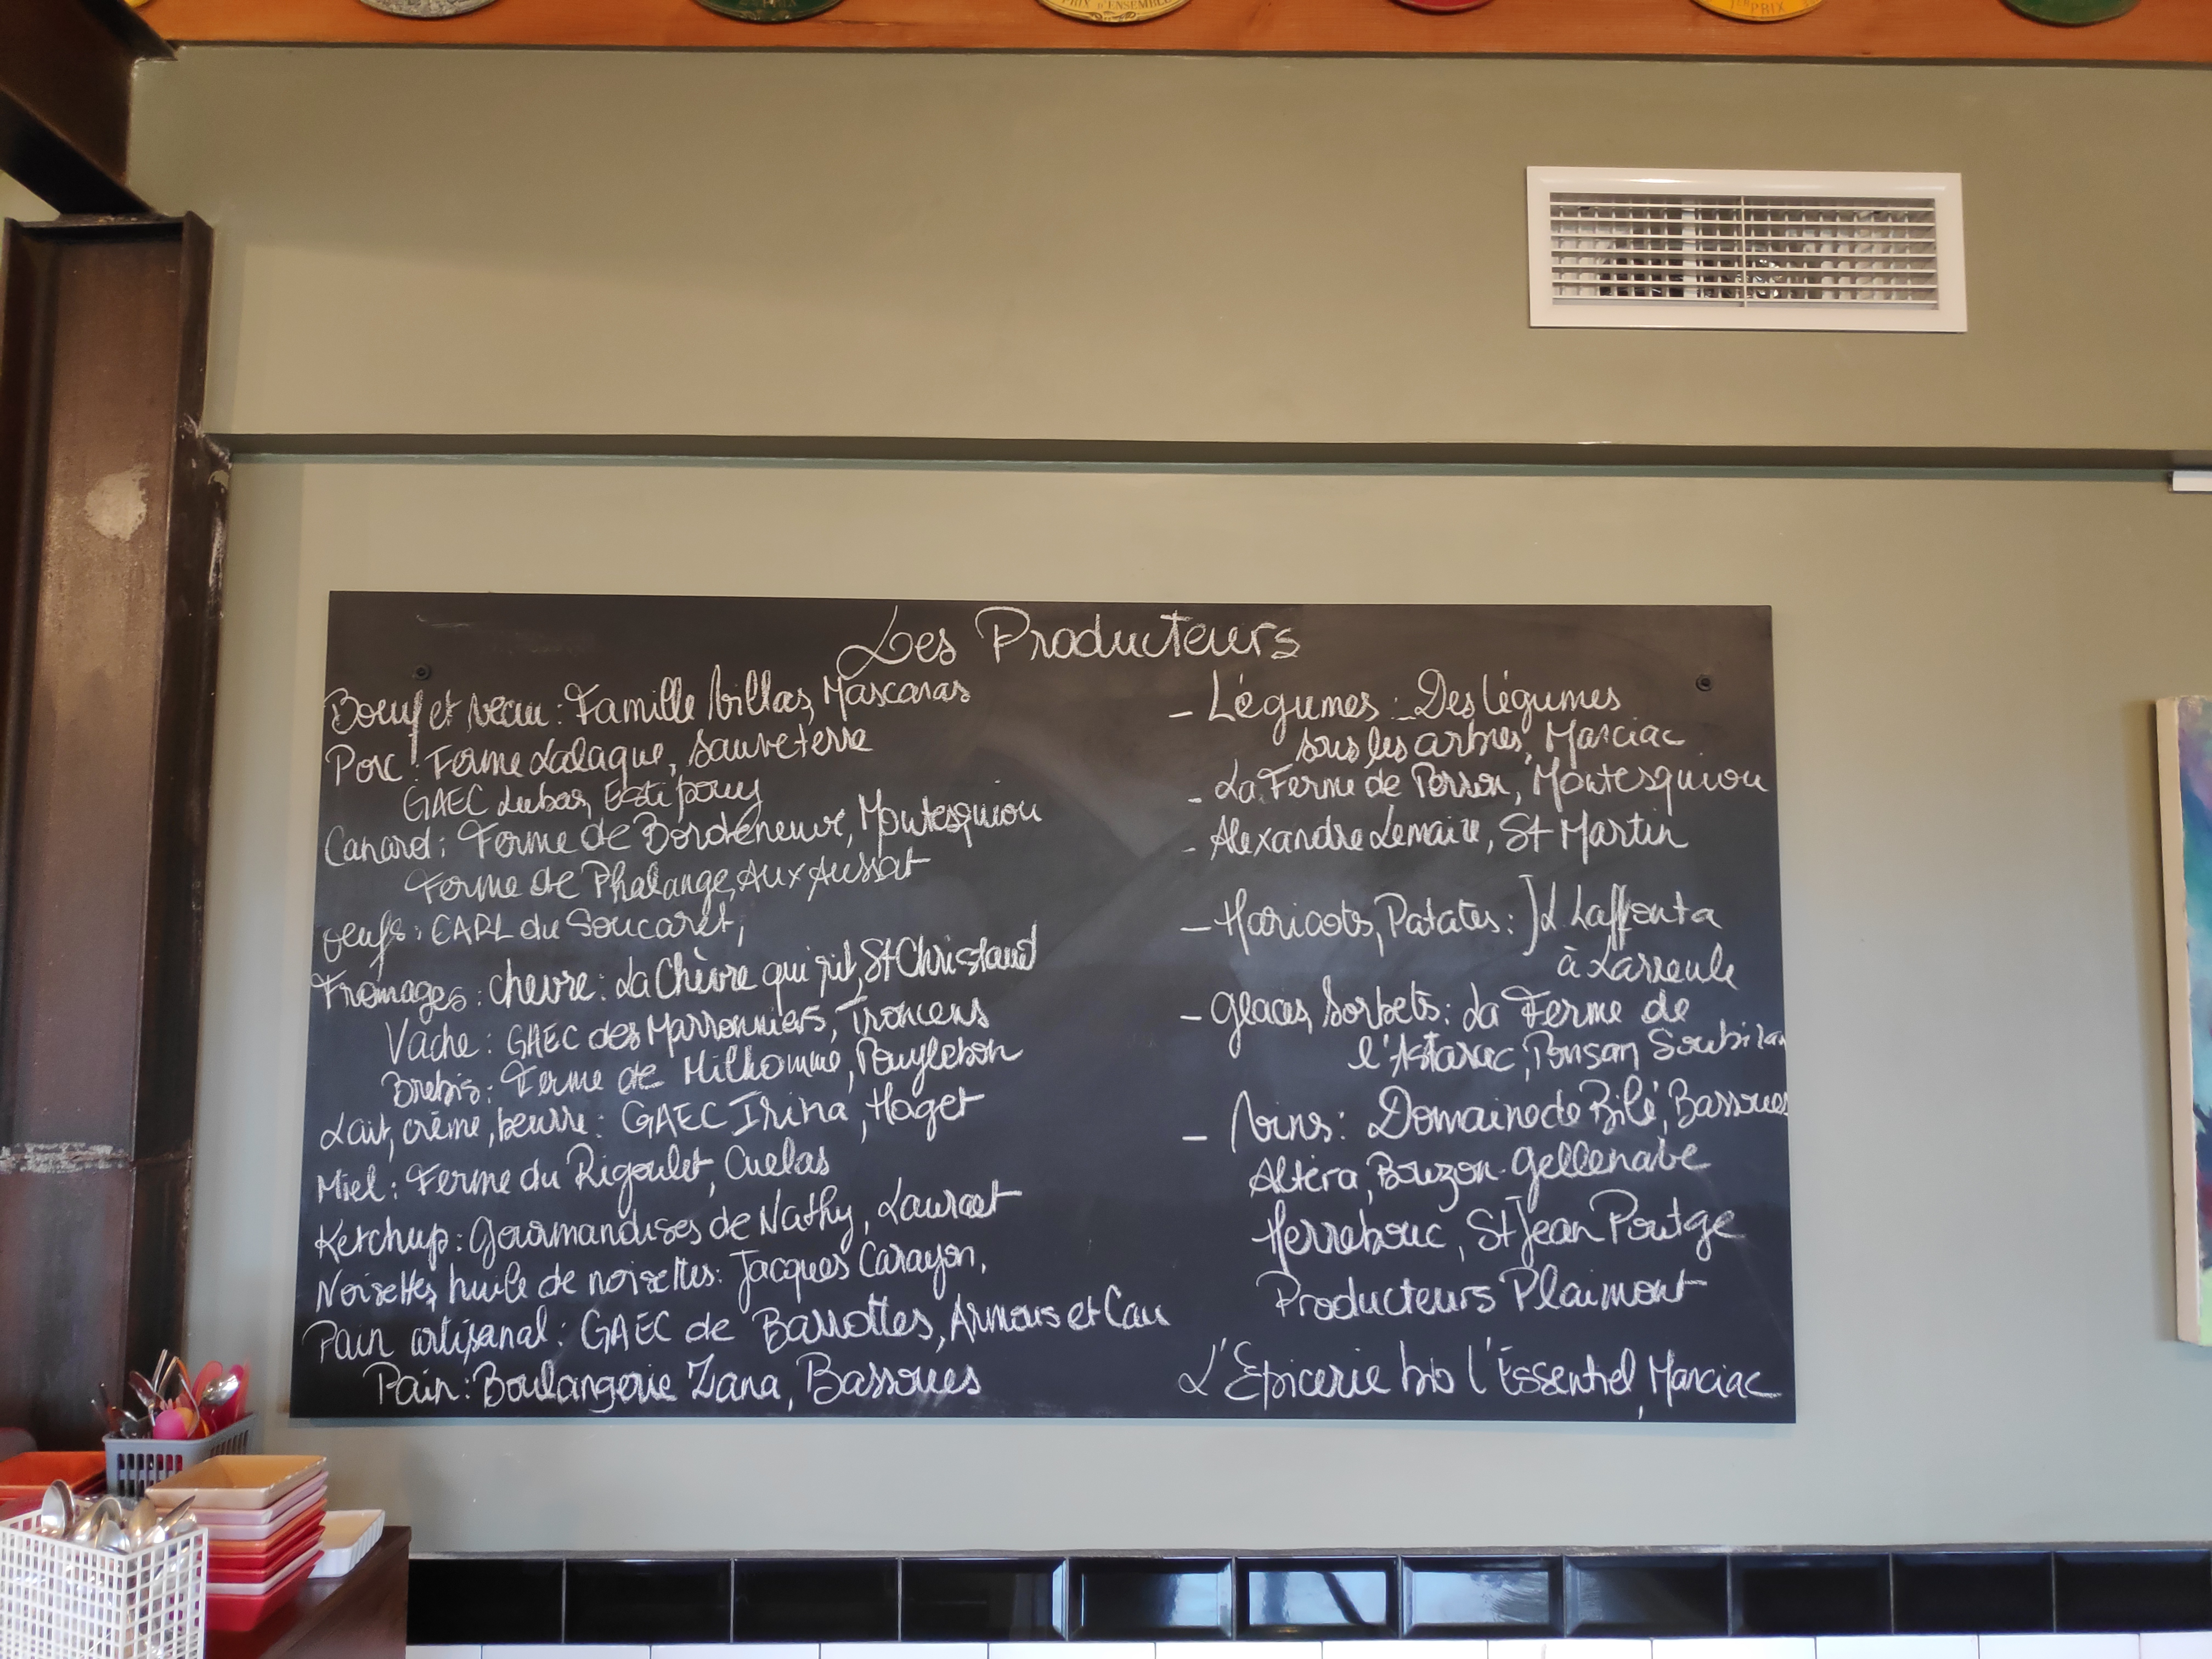 PRIX
PRIX D'ENSEMBLE
1ER PRIX
Les Producteurs
Boeuf et veau : Famille Villas, Mascaras
Porc : Ferme Lalague, Sauveterre
GAEC Lubas, Estipouy
Canard : Ferme de Bordeneuve, Montesquiou
Ferme de Phalange, Aux Aussat
Oeufs : EARL du Soucaret,
Fromages : chevre : La Chèvre qui rit, St Christaud
Vache : GAEC des Marronniers, Troncens
Brebis : Ferme de Milhomme, Pouylebon
Lait, crème, beurre : GAEC Irina, Haget
Miel : Ferme du Rigoulet, Cuelas
Ketchup : Gourmandises de Nathy, Lauraet
Noisettes, huile de noisettes : Jacques Carayon,
Pain artisanal : GAEC de Barrottes, Armous et Cau
Pain : Boulangerie Zana, Bassoues
- Légumes : Des légumes
sous les arbres, Marciac
- La Ferme de Perron, Montesquiou
- Alexandre Lemaire, St Martin
- Haricots, Patates : JL Laffonta
à Larreule
- Glaces, Sorbets : La Ferme de
l'Astarac, Ponsan Soubiran
- Vins : Domaine de Bilé, Bassoues
Altéra, Bouzon-Gellenave
Herrebouc, St Jean Poutge
Producteurs Plaimont
L'Epicerie bio l'Essentiel, Marciac